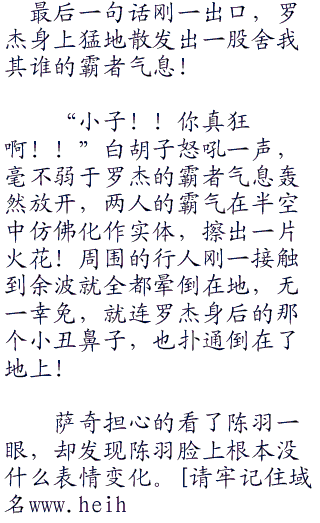 最后一句话刚一出口，罗
杰身上猛地散发出一股舍我
其谁的霸者气息！
“小子！！你真狂
啊！！”白胡子怒吼一声，
毫不弱于罗杰的霸者气息轰
然放开，两人的霸气在半空
中仿佛化作实体，擦出一片
火花！周围的行人刚一接触
到余波就全都晕倒在地，无
一幸免，就连罗杰身后的那
个小丑鼻子，也扑通倒在了
地上！
萨奇担心的看了陈羽一
眼，却发现陈羽脸上根本没
什么表情变化。[请牢记住域
名www.heih